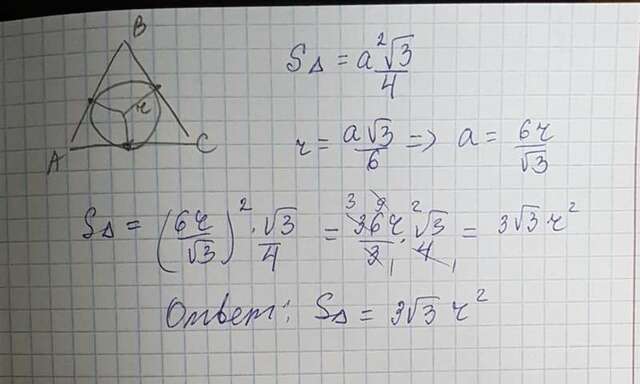 B
A
C
r
S△ = a²√3/4
r = a√3/6 => a = 6r/√3
S△ = (6r/√3)² · √3/4 = 36r²/3 · √3/4 = 3√3 r²
Ответ: S△ = 3√3 r²